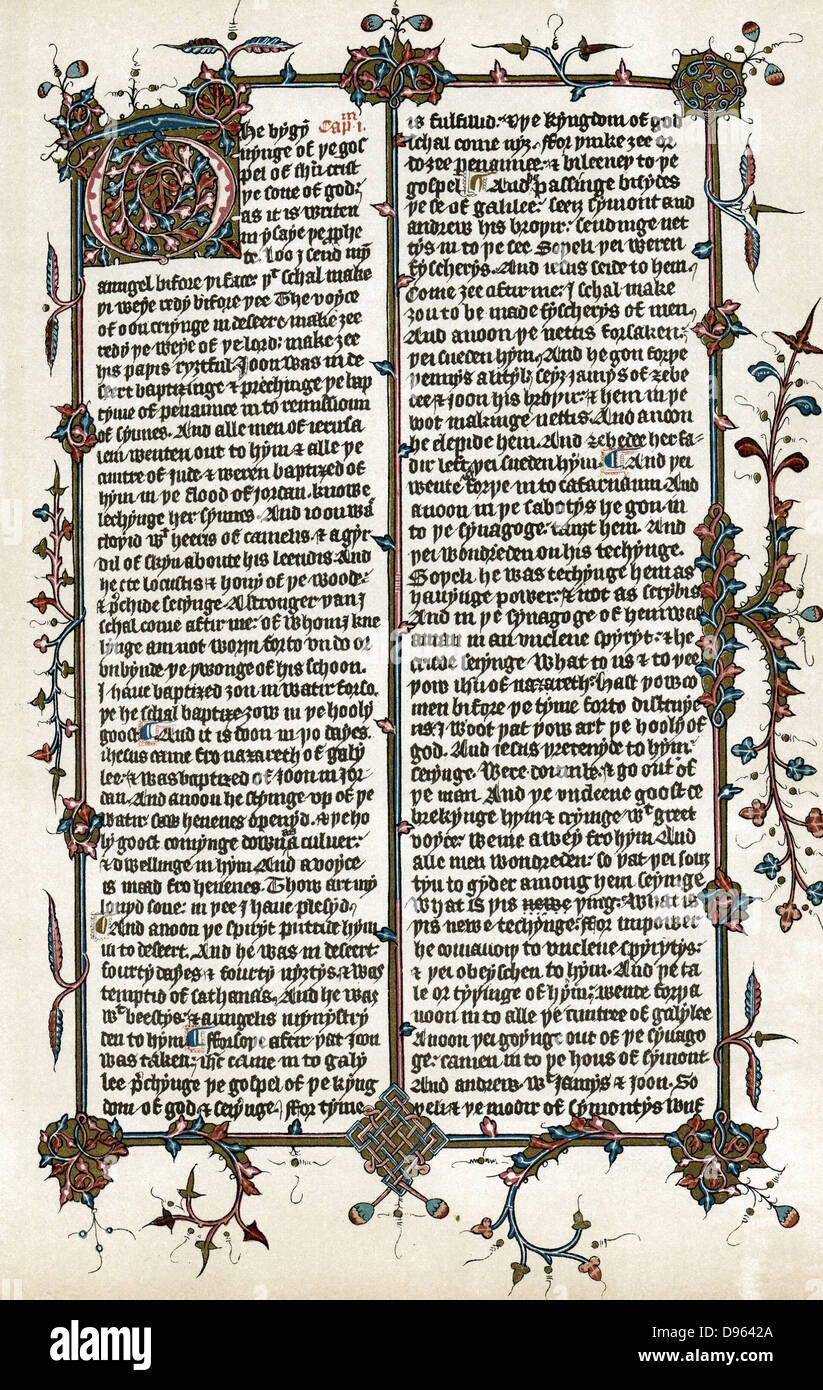 he bygyn Capm i.
nynge of þe gos
pel of ihū crist
þe sone of god:
as it is writen
in ysaye þe pphe
te. Loo I send myn
aungel bifore þi face: þt schal make
þi weye redy bifore þee The voyce
of oon cryinge in deseert make ȝee
redy þe weye of þe lord: make ȝee
his paþis ryȝtful Joon was in de
seert baptizinge & prechinge þe bap
tyme of penaunce in to remissioun
of synnes. And alle men of ierusa
lem wenten out to hym & alle þe
cuntre of Jude & weren baptized of
hym in þe flood of Jordan. knowe
lechynge her synnes. And ioon was
cloþid wt heeris of camelis: & a gyr
dil of skyn aboute his leendis And
he ete locustis & hony of þe wood:
& pchide seyinge. A stronger þan I
schal come aftir me: of whom I kne
lynge am not worþi forto vndo or
vnbynde þe þwonge of his schoon.
I haue baptized ȝou in watir forso
þe he schal baptize ȝow in þe hooly
goost And it is doon in þo dayes.
ihesus came fro nazareth of galy
lee & was baptized of Joon in Jor
dan. And anoon he styinge vp of þe
watir saw heuenes openyd. & þe ho
ly goost comynge doun as a culuer:
& dwellinge in hym And a voyce
is maad fro heuenes. Thow art my
louyd sone: in þee I haue plesyd.
And anoon þe spiryt puttide hym
in to desert. And he was in deseert
fourty dayes & fourty nyȝtis & was
temptid of sathanas. And he was
wt beestys: & aungelis mynystry
den to hym fforsoþe aftir þat Joon
was taken: ihc came in to galy
lee pchynge þe gospel of þe kyng
dom of god & seyinge. ffor tyme
is fulfillid: & þe kyngdom of god
schal come nyȝ. ffor þinke ȝee or
do ȝee penaunce: & bileeuey to þe
gospel And he passinge bisydes
þe se of galilee: seeȝ symont and
andrew his broþir: sendinge net
tys in to þe see Soþeli þei weren
fyscherys. And iesus seide to hem.
Come ȝee aftir me: I schal make
ȝou to be made fyscherys of men.
And anoon þe nettis forsaken:
þei sueden hym. And he gon forþe
þennys a lityl: seyȝ jamys of ȝebe
dee & joon his broþir: & hem in þe
bot makinge nettis. And anoon
he clepide hem. And ȝebede her fa-
dir left þei sueden hym. And þei
wente forþe in to cafarnaum And
anoon in þe sabotys he gon in
to þe synagoge: tauȝt hem. And
þei wondreden on his techynge.
Soþeli he was techynge hem as
hauynge power: & not as scrybis
And in þe synagoge of hem was
a man in an vnclene spyryt: & he
criede seyinge What to us & to þee
þow ihū of nazareth: hast þow co
men bifore þe tyme forto distruye
us: I woot þat þow art þe hooly of
god. And iesus þretenyde to hym:
seyinge. Were doumbe: & go out of
þe man. And þe vnclene goost to
brekynge hym & cryinge wt greet
voyce: wente a wey fro hym And
alle men wondreden: so þat þei souȝ
tyn to gyder among hem seyinge
What is þis newe þing: What is
þis newe techynge: ffor in power
he comaundiþ to vnclene spyrytys:
& þei obeyschen to hym. And þe ta
le or tyþinge of hym: wente forþ a
noon in to alle þe cuntree of galylee
Anoon þei goynge out of þe synago
ge: camen in to þe hous of symont
And andrew wt Jamys & joon. So
þeli & þe modir of symontys wijf
alamy
D9642A
www.alamy.com